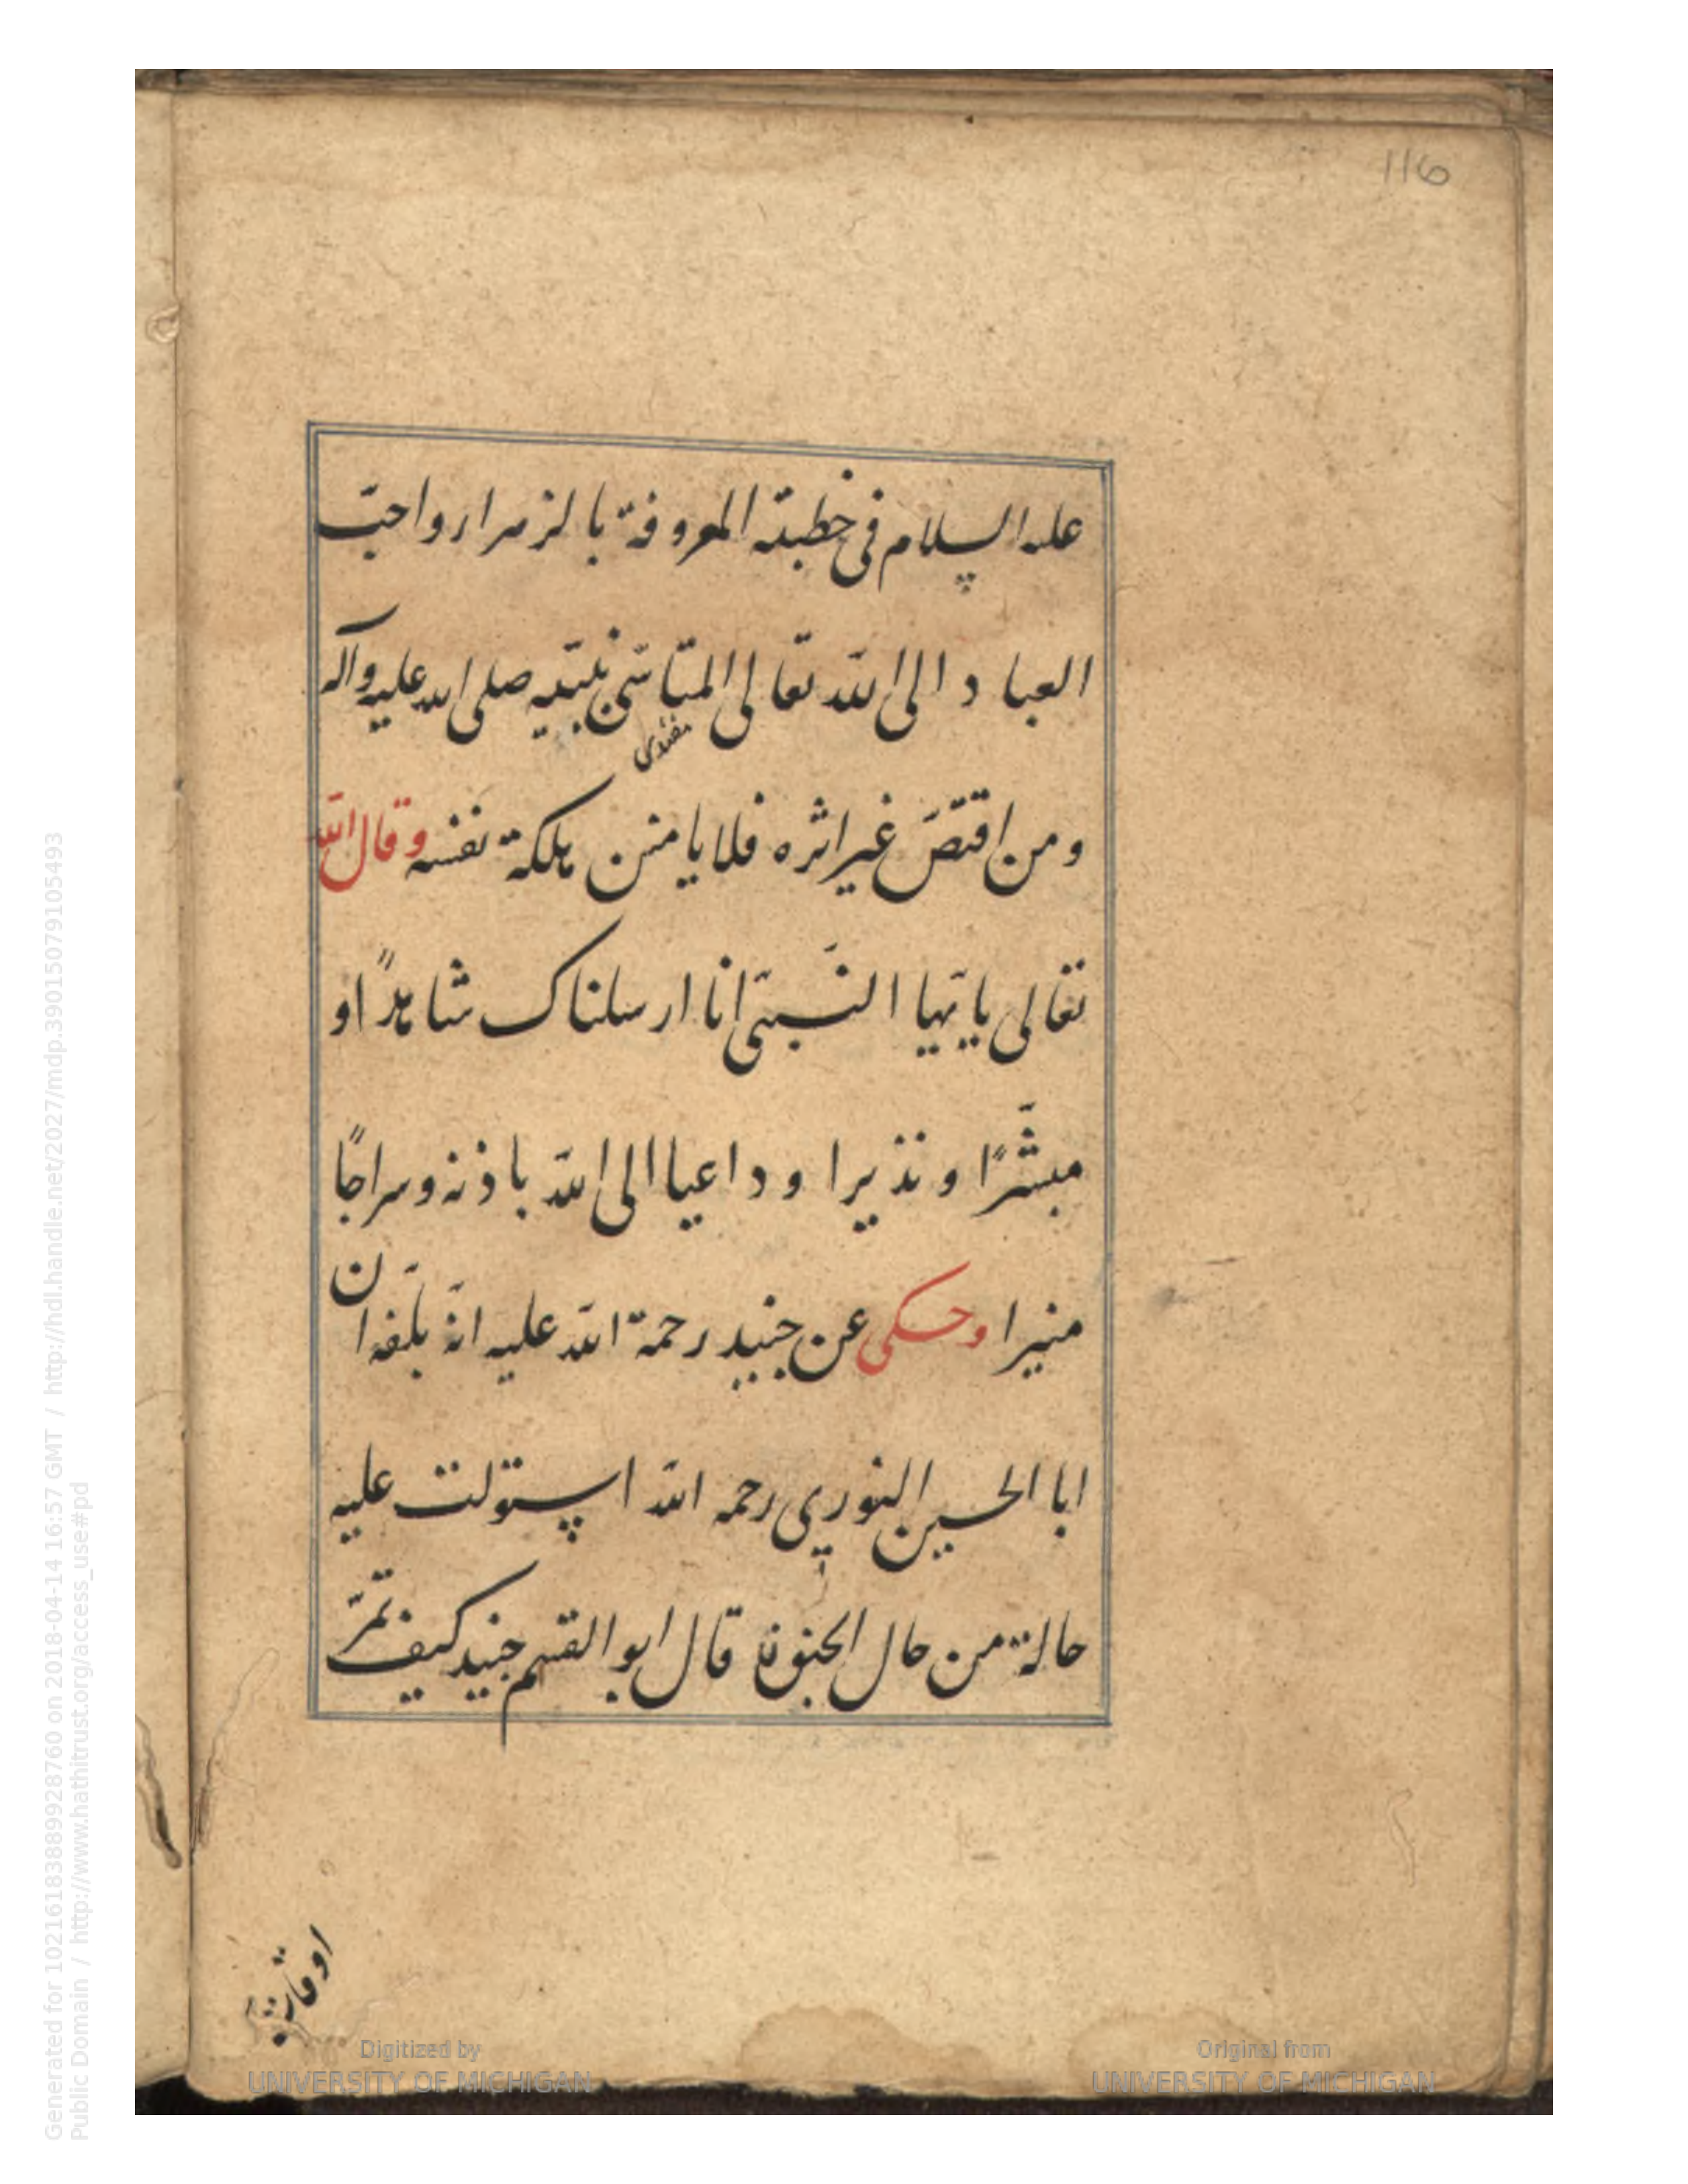 116
علیه السلام فی خطبته المعروفة بالزمرار واحبّ
العباد الی اللّه تعالی المتاسّی بنبیّه صلی الله علیه وآله
مقتدی
ومن اقتصّ غیر اثره فلا یامنن هلکة نفسه وقال اللّه
تعالی یا یّها النّبیّ انا ارسلناک شاهدًا و
مبشّرًا ونذیرا وداعیا الی اللّه باذنه وسراجًا
منیرا وحکی عن جنید رحمة اللّه علیه انّه بلغه ان
ابا الحسین النوری رحمه اللّه استولت علیه
حالة من حال الجنون قال ابو القسم جنید کیف تمرّ
اوقات
Digitized by
UNIVERSITY OF MICHIGAN
Original from
UNIVERSITY OF MICHIGAN
Generated for 1021618388992876​0 on 2018-04-14 16:57 GMT / http://hdl.handle.net/2027/mdp.39015079105493
Public Domain / http://www.hathitrust.org/access_use#pd